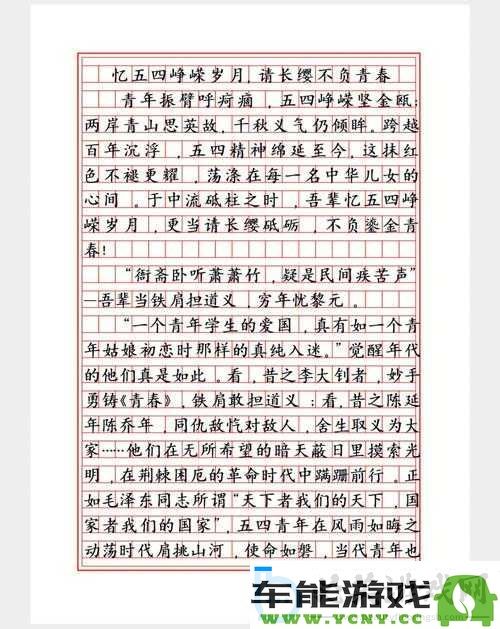 忆五四峥嵘岁月,请长缨不负青春
青年振臂呼疴痛，五四峥嵘坚金瓯;
两岸青山思英故，千秋义气仍倾眸。跨越
百年沉浮，五四精神绵延至今，这抹红
色不褪更耀，荡涤在每一名中华儿女的
心间。于中流砥柱之时，吾辈忆五四峥
嵘岁月，更当请长缨砥砺，不负鎏金青
春!
“衙斋卧听萧萧竹，疑是民间疾苦声”
—吾辈当铁肩担道义，穷年忧黎元。
“一个青年学生的爱国，真有如一个青
年姑娘初恋时那样的真纯入迷。”觉醒年代
的他们真是如此。看，昔之李大钊者，妙手
勇铸《青春》，铁肩敢担道义；看，昔之陈延
年陈乔年，同仇敌忾对敌人，舍生取义为大
家……他们在无所希望的暗天蔽日里摸索光
明，在荆棘困厄的革命时代中蹒跚前行。正
如毛泽东同志所谓“天下者我们的天下，国
家者我们的国家”，五四青年在风雨如晦之
动荡时代肩挑山河，使命如磐，当代青年也
车能游戏
WWW.YCNY.CC